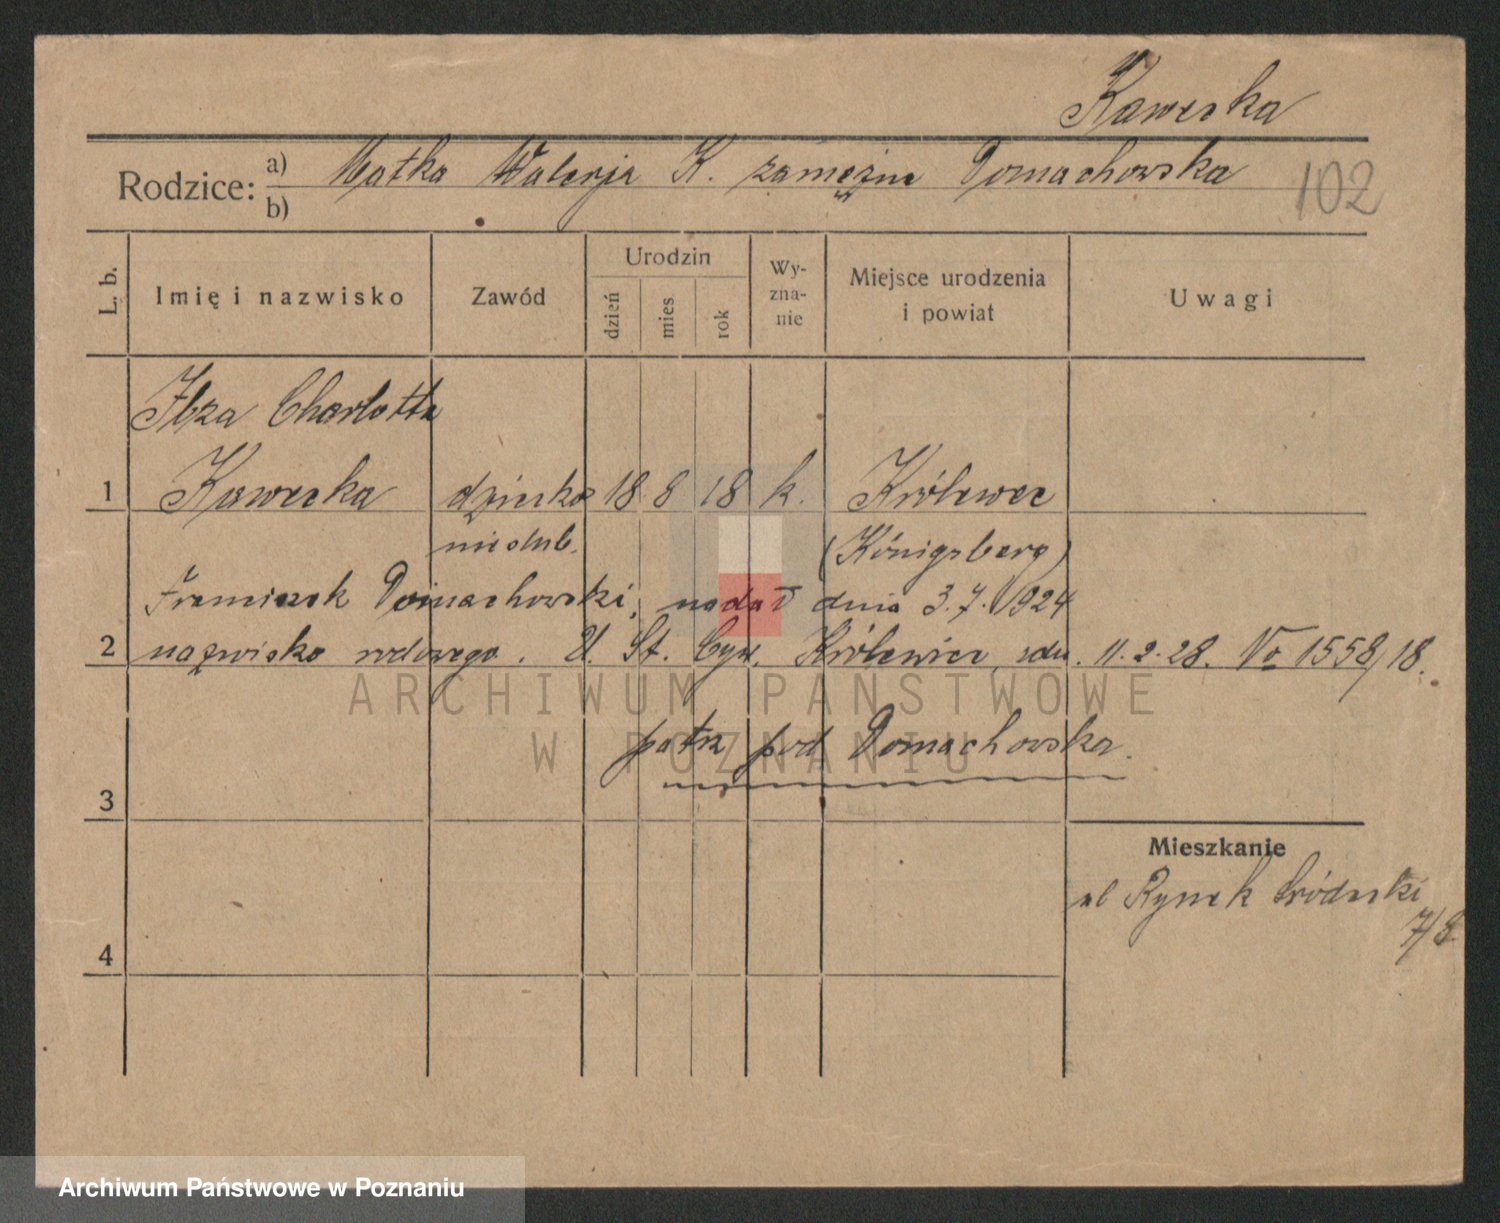 Kawecka
Rodzice: a) Matka Walerja K. zamężna Domachowska
b)
102
L. b.
Imię i nazwisko
Zawód
Urodzin
dzień
mies
rok
Wy-
zna-
nie
Miejsce urodzenia
i powiat
Uwagi
Ilza Charlotta
1 Kawecka dziecko 18 8 18 k. Królewec
nieślub. (Königsberg)
Franciszek Domachowski, nadał dnia 3.7.1924
2 nazwisko rodowego. U. St. Cyw. Królewiec, zdn. 11.2.28. No 1558/18.
ARCHIWUM PAŃSTWOWE
W POZNANIU
patrz pod Domachowska.
3
Mieszkanie
ul Rynek Śródecki
7/8.
4
Archiwum Państwowe w Poznaniu